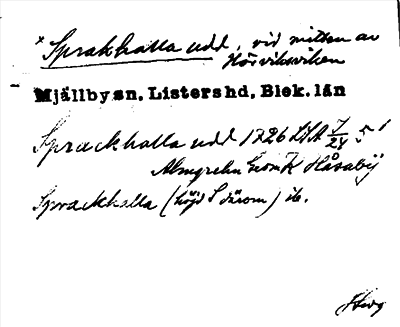 * Sprakhalla udd, vid mitten av
Hörviksviken
Mjällby sn, Listers hd, Blek. län
Sprackhalla udd 1726 LSA I/24 5 1
Almgrehn GeomK Håsaby
Sprackhalla (höjd S därom) ib.